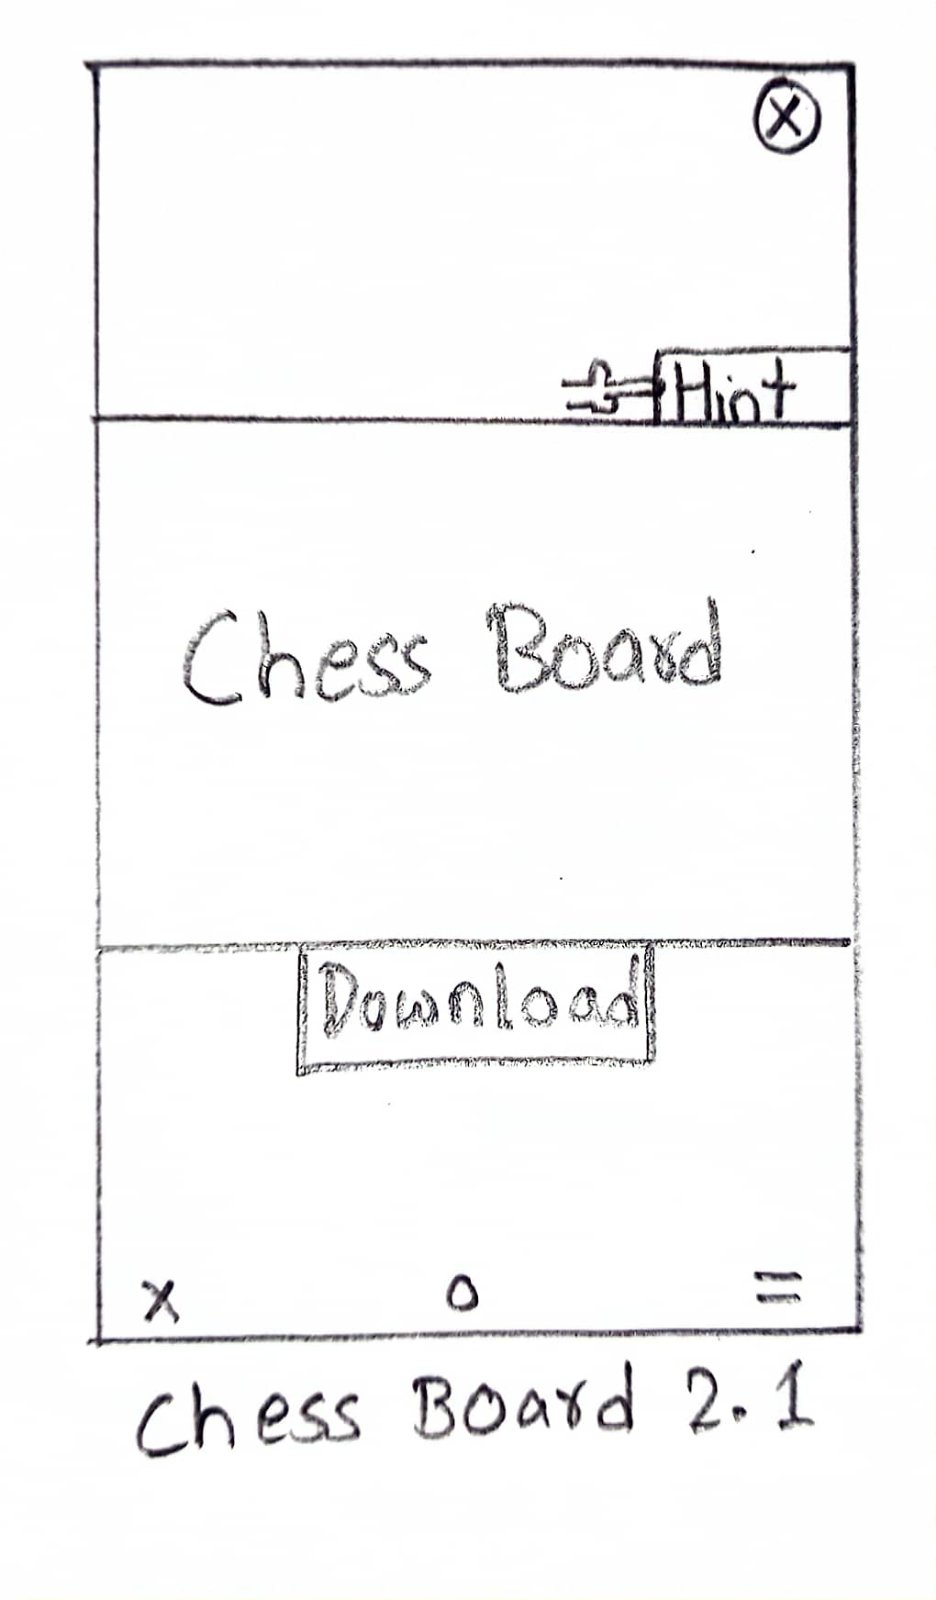 X
Hint
Chess Board
Download
X O =
Chess Board 2.1